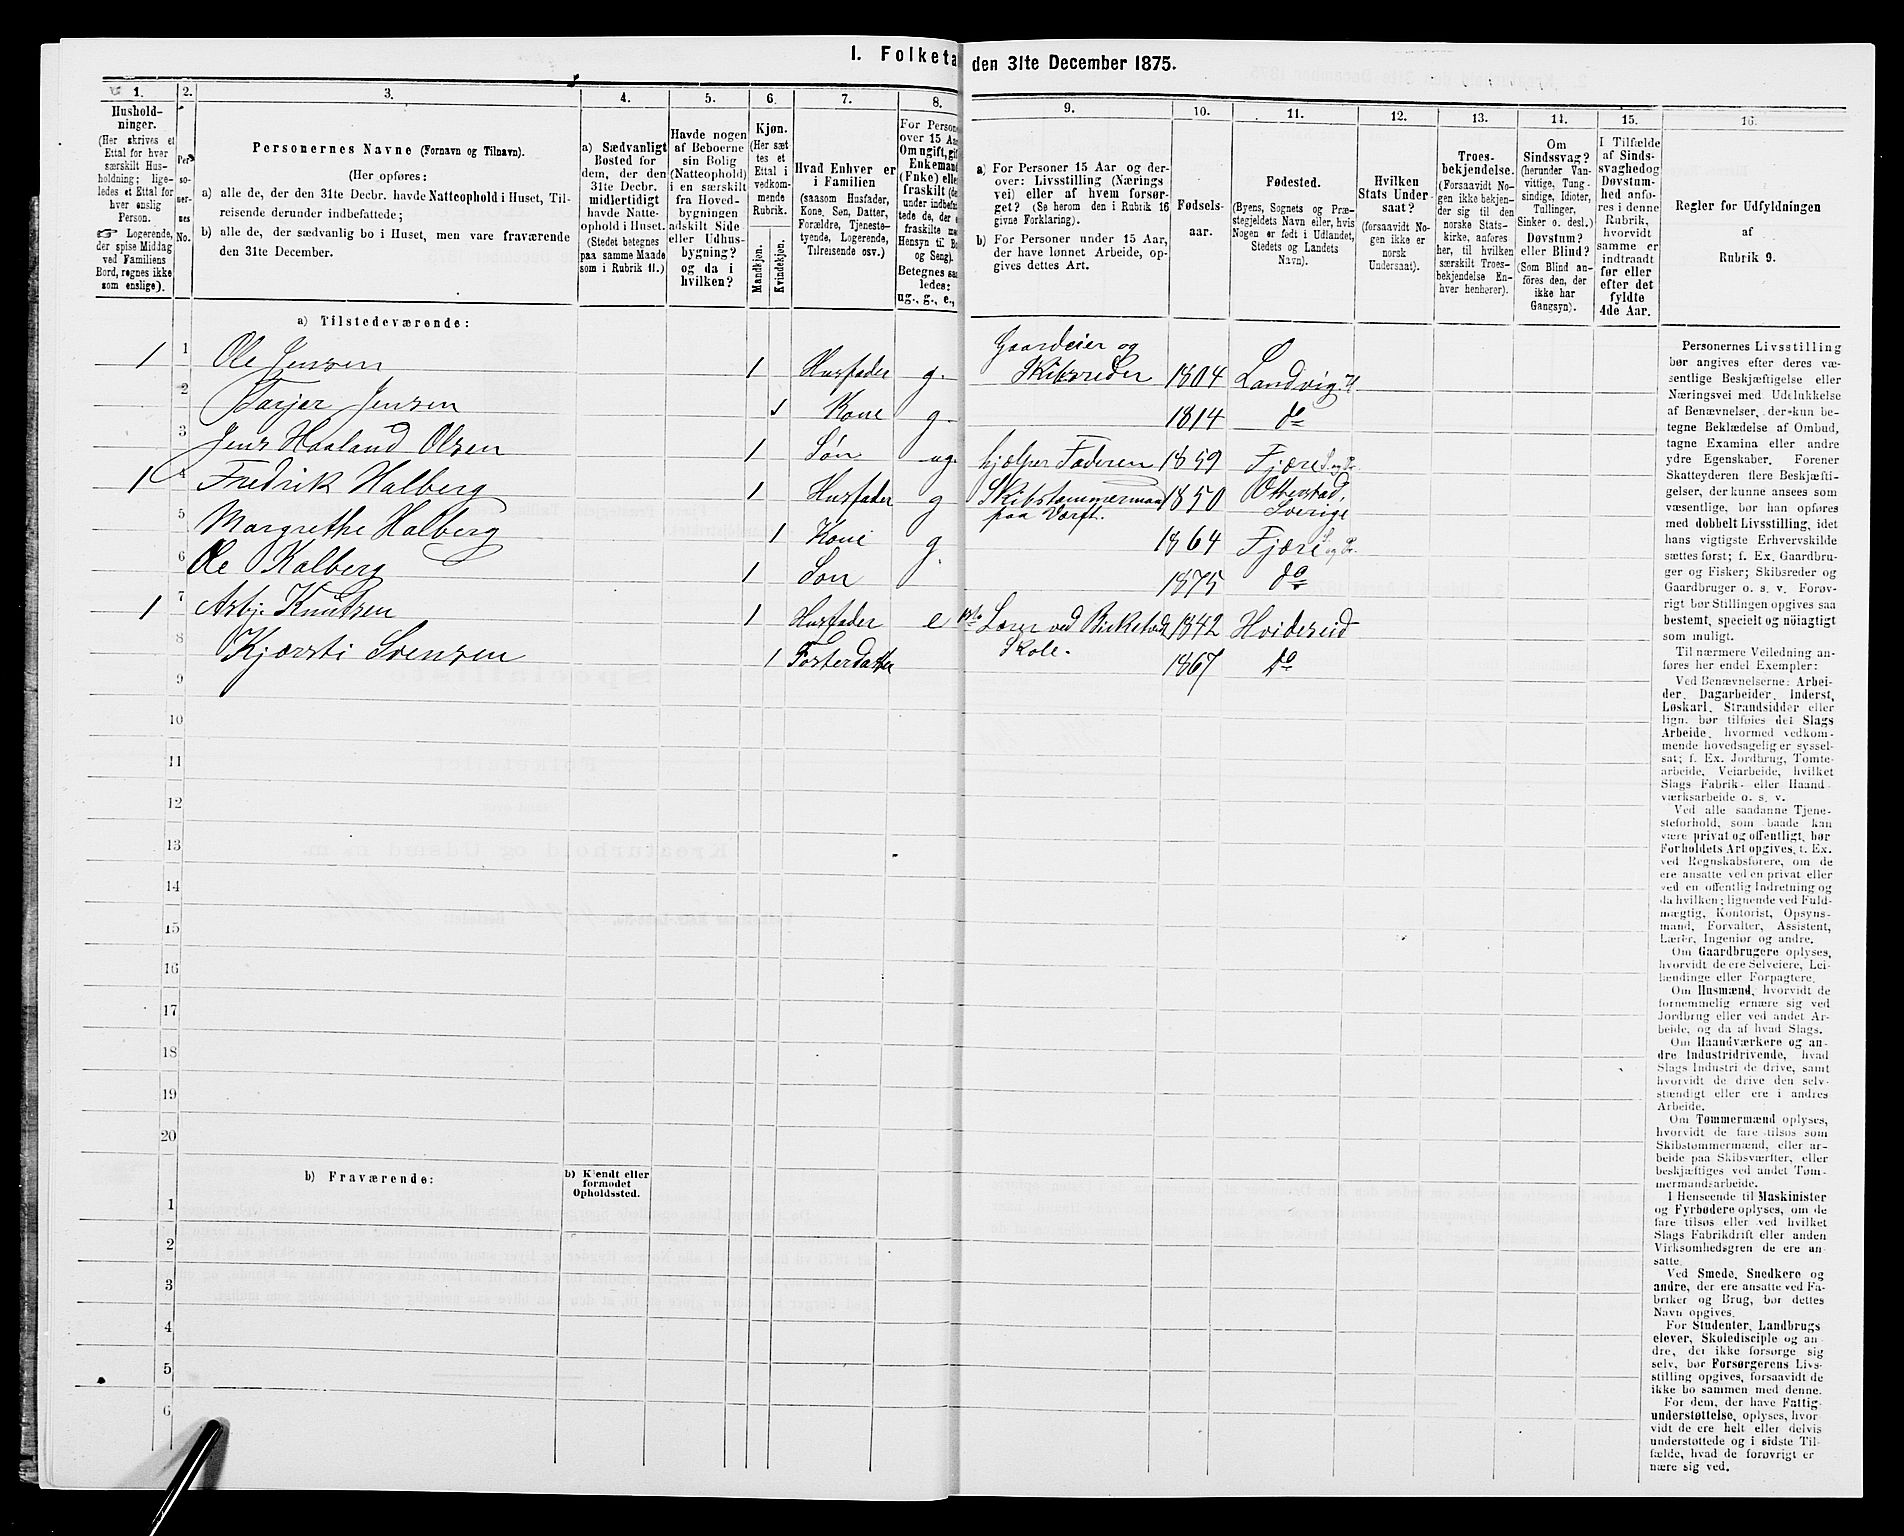 I. Folketa
den 31te December 1875.
1.
2.
3.
4.
5.
6.
7.
8.
9.
10.
11.
12.
13.
14.
15.
16.
Hushold-
ninger.
(Her skrives et
Ettal for hver
særskilt Hus-
holdning; lige-
ledes et Ettal for
hver enslig
Person.
☞ Logerende,
der spise Middag
ved Familiens
Bord, regnes ikke
som enslige).
Per-
so-
ner-
nes
No.
Personernes Navne (Fornavn og Tilnavn).
(Her opføres:
a) alle de, der den 31te Decbr. havde Natteophold i Huset, Til-
reisende derunder indbefattede;
b) alle de, der sædvanlig bo i Huset, men vare fraværende
den 31te December.
a) Sædvanligt
Bosted for
dem, der den
31te Decbr.
midlertidigt
havde Natte-
ophold i Huset.
(Stedet betegnes
paa samme Maade
som i Rubrik 11.)
Havde nogen
af Beboerne
sin Bolig
(Natteophold)
i en særskilt
fra Hoved-
bygningen
adskilt Side
eller Udhus-
bygning?
og da i
hvilken?
Kjøn.
(Her sæt
tes et
Ettal i
vedkom-
mende
Rubrik.
Mandkjøn.
Kvindekjøn.
Hvad Enhver er
i Familien
(saasom Husfader,
Kone, Søn, Datter,
Forældre, Tjeneste-
tyende, Logerende,
Tilreisende osv.)
For Person
over 15 Aar
Om ugift, gift
Enkemand
(Enke) elle
fraskilt (de
under indbefat
tede de, der e
fraskilte me
Hensyn til Bo
og Seng).
Betegnes saa
ledes:
ug., g., e.,
a) For Personer 15 Aar og der-
over: Livsstilling (Nærings
vei) eller af hvem forsør-
get? (Se herom den i Rubrik 16
givne Forklaring).
b) For Personer under 15 Aar,
der have lønnet Arbeide, op-
gives dettes Art.
Fødsels-
aar.
Fødested.
(Byens, Sognets og Præ-
stegjeldets Navn eller, hvis
Nogen er født i Udlandet,
Stedets og Landets
Navn).
Hvilken
Stats Under
saat?
(forsaavidt No-
gen ikke er
norsk
Undersaat).
Troes-
bekjendelse.
(Forsaavidt No-
gen ikke bekjen-
der sig til den
norske Stats-
kirke, anføres
her, til hvilken
særskilt Troes-
bekjendelse En-
hver henhører).
Om
Sindssvag?
(herunder Van-
vittige, Tung-
sindige, Idioter,
Tullinger,
Sinker o. desl.)
Døvstum?
eller Blind?
(Som Blind an-
føres den, der
ikke har
Gangsyn).
I Tilfælde
af Sinds-
svaghed og
Døvstum-
hed anfø-
res i denne
Rubrik,
hvorvidt
samme er
indtraadt
før eller
efter det
fyldte
4de Aar.
Regler for Udfyldningen
af
Rubrik 9.
a) Tilstedeværende:
1 1 Ole Jensen 1 Husfader g. Gaardeier og
Skibsreder 1804 Landvig
2 Tarjer Jensen 1 Kone g. 1814 do
3 Jens Haaland Olsen 1 Søn ug. hjelper Faderen 1859 Fjære S. og Pr.
1 4 Fredrik Halberg 1 Husfader g Skibstømmermand
paa Værft. 1850 Otterstad,
Sverige
5 Margrethe Halberg 1 Kone g. 1864 Fjære S. og Pr.
6 Ole Kalberg 1 Søn 1875 do
1 7 Asbj. Knutsen 1 Husfader e Lærer ved
Skole. 1842 Hvideseid
8 Kjersti Svensen 1 Fosterdatter 1867 do
9
10
11
12
13
14
15
16
17
18
19
20
b) Fraværende:
b) Kjendt eller
formodet
Opholdssted.
1
2
3
4
5
6
Personernes Livsstilling
bør angives efter deres væ-
sentlige Beskjæftigelse eller
Næringsvei med Udelukkelse
af Benævnelser, der kun be-
tegne Beklædelse af Ombud,
tagne Examina eller andre
ydre Egenskaber. Forener
Skatteyderen flere Beskjæfti-
gelser, der kunne ansees som
væsentlige, bør han opføres
med dobbelt Livsstilling, idet
hans vigtigste Erhvervskilde
sættes først; f. Ex. Gaardbru-
ger og Fisker; Skibsreder og
Gaardbruger o. s. v. Forøv-
rigt bør Stillingen opgives saa
bestemt, specielt og nöiagtigt
som muligt.
Til nærmere Veiledning an-
føres her endel Exempler:
Ved Benævnelserne: Arbei-
der, Dagarbeider, Inderst,
Løskarl, Strandsidder eller
lign. bør tilføies det Slags
Arbeide, hvormed vedkom-
mende hovedsagelig er syssel-
sat; f. Ex. Jordbrug, Tomte-
arbeide, Veiarbeide, hvilket
Slags Fabrik- eller Haand-
værksarbeide o. s. v.
Ved alle saadanne Tjene-
steforhold, som baade kan
være privat og offentligt, bør
Forholdets Art opgives, f. Ex.
ved Regnskabsførere, om de
ere ansatte ved en privat eller
ved en offentlig Indretning og
da hvilken; lignende ved Fuld-
mægtig, Kontorist, Opsyns-
mand, Forvalter, Assistent,
Lærer, Ingeniør og andre.
Om Gaardbrugere oplyses,
hvorvidt de ere Selveiere, Lei-
lændinge eller Forpagtere.
Om Husmænd, hvorvidt de
fornemmelig ernære sig ved
Jordbrug eller ved andet Ar-
beide, og da af hvad Slags.
Om Haandværkere og an-
dre Industridrivende, hvad
Slags Industri de drive, samt
hvorvidt de drive den selv-
stændigt eller ere i andres
Arbeide.
Om Tømmermænd oplyses,
hvorvidt de fare tilsøs som
Skibstømmermænd, eller ar-
beide paa Skibsværfter, eller
beskjæftiges ved andet Tøm-
mermandsarbeide.
I Henseende til Maskinister
og Fyrbødere oplyses, om de
fare tilsøs eller ved hvilket
Slags Fabrikdrift eller anden
Virksomhedsgren de ere an-
satte.
Ved Smede, Snedkere og
andre, der ere ansatte ved Fa-
briker og Brug, bør dettes
Navn opgives.
For Studenter, Landbrugs
elever, Skoledisciple og an-
dre, der ikke forsørge sig
selv, bør Forsørgerens Livs-
stilling opgives, forsaavidt de
ikke bo sammen med denne.
For dem, der have Fattig-
understøttelse, oplyses, hvor-
vidt de ere helt eller delvis
understøttede og i sidste Til-
fælde, hvad de forøvrigt er
nære sig ved.